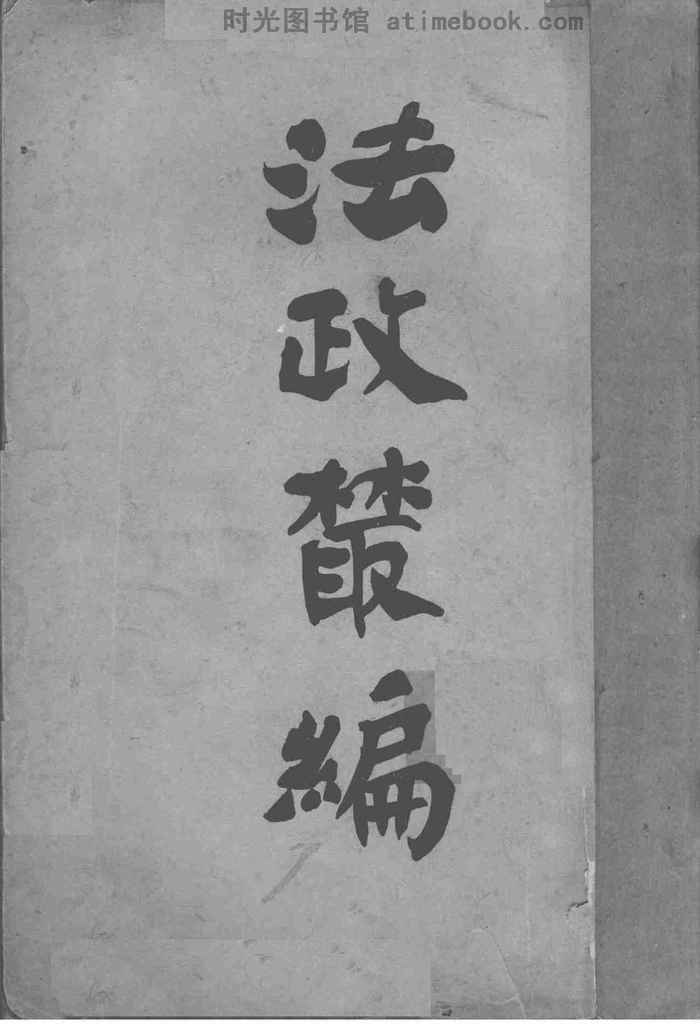 时光图书馆 atimebook.com
法
政
叢
編